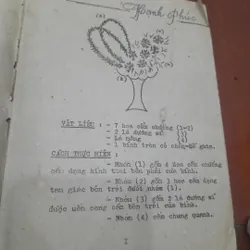 Hạnh Phúc
(3)
(2)
(1)
VẬT LIỆU : - 7 hoa cẩm chướng (1-7)
- 2 lá dương xỉ
- Lá măng
- 1 bình tròn có chân để gươm.
CÁCH THỰC HIỆN :
- Nhóm (1) gồm 4 hoa cẩm chướng
cắm dạng hình thoi bên phải của bình.
- Nhóm (2) gồm 3 hoa cắm dạng
tam giác bên trái dưới nhóm (1).
- Nhóm (3) gồm 2 lá dương xỉ
được uốn cong cắm bên trái của bình.
- Nhóm (4) cắm chung quanh.